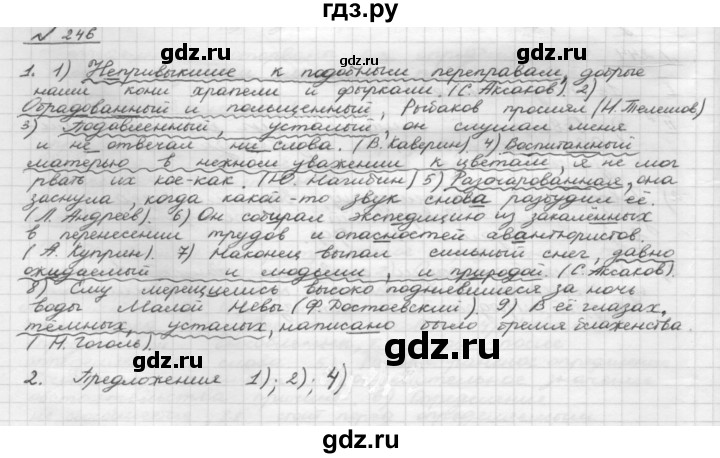 гдз.ру
№ 246
1. 1) Непривыкшие к подобным переправам, добрые
наши кони храпели и фыркали. (С. Аксаков). 2)
Обрадованный и польщенный, Рыбаков просиял (Н. Телешов)
3) Подавленный, усталый, он слушал меня
и не отвечал ни слова. (В. Каверин) 4) Воспитанный
матерью в нежном уважении к цветам, я не мог
рвать их кое-как. (Ю. Нагибин) 5) Разочарованная, она
заснула, когда какой-то звук снова разбудил её.
(Л. Андреев). 6) Он собирал экспедицию из закалённых
в перенесении трудов и опасностей авантюристов.
(А. Куприн). 7) Наконец выпал сильный снег, давно
ожидаемый и людьми, и природой. (С. Аксаков).
8) Ему мерещились высоко поднявшиеся за ночь
воды Малой Невы (Ф. Достоевский). 9) В её глазах,
тёмных, усталых, написано было бремя блаженства.
(Н. Гоголь).
2. Предложения 1); 2); 4)
gdz.ru
gdz.ru
gdz.ru
gdz.ru
gdz.ru
gdz.ru
gdz.ru
gdz.ru
gdz.ru
gdz.ru
gdz.ru